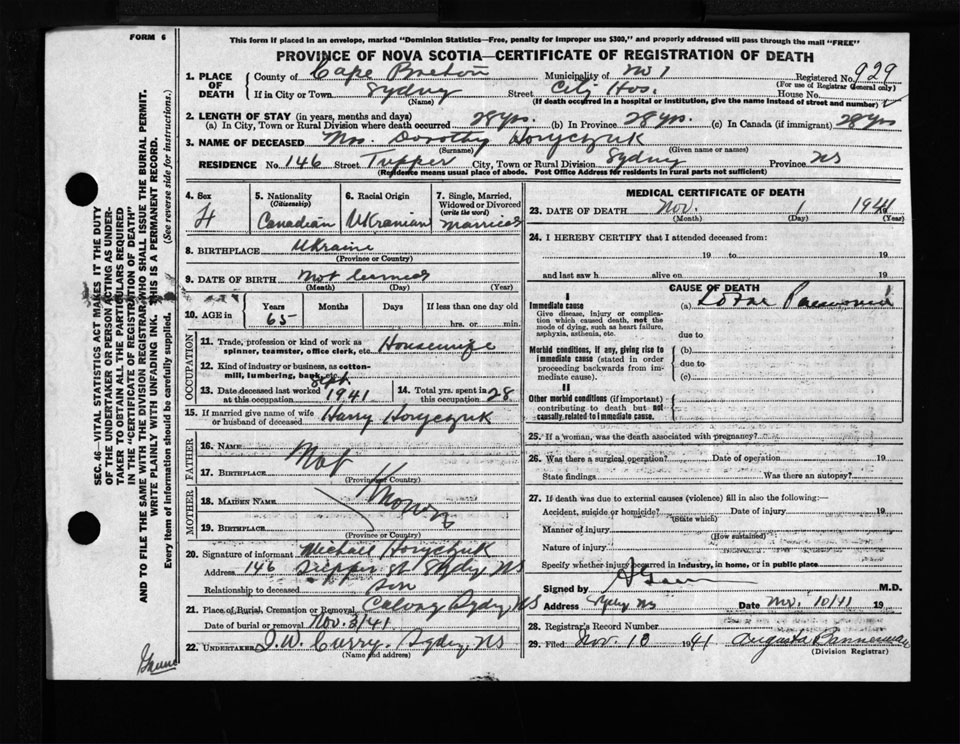 FORM 6
This form if placed in an envelope, marked "Dominion Statistics—Free, penalty for improper use $300," and properly addressed will pass through the mail "FREE"
PROVINCE OF NOVA SCOTIA—CERTIFICATE OF REGISTRATION OF DEATH
1. PLACE OF DEATH County of Cape Breton Municipality of No 1 Registered No. 929
(For use of Registrar General only)
If in City or Town Sydney Street City Hos. House No.
(Name) (If death occurred in a hospital or institution, give the name instead of street and number)
2. LENGTH OF STAY (in years, months and days)
(a) In City, Town or Rural Division where death occurred 28 yrs. (b) In Province 28 yrs. (c) In Canada (if immigrant) 28 yrs
3. NAME OF DECEASED Mrs. Dorothy Horyczuk
(Surname) (Given name or names)
RESIDENCE No. 146 Street Tupper City, Town or Rural Division Sydney Province NS
(Residence means usual place of abode. Post Office Address for residents in rural parts not sufficient)
4. Sex
F
5. Nationality (Citizenship)
Canadian
6. Racial Origin
Ukranian
7. Single, Married, Widowed or Divorced (write the word)
Married
8. BIRTHPLACE Ukraine
(Province or Country)
9. DATE OF BIRTH Not
(Month) (Day) (Year)
10. AGE in Years Months Days If less than one day
65 hrs. or min.
OCCUPATION
11. Trade, profession or kind of work as spinner, teamster, office clerk, etc. Housewife
12. Kind of industry or business, as cotton-mill, lumbering, bank, etc.
13. Date deceased last worked at this occupation Sept 1941
14. Total yrs. spent in this occupation 28
15. If married give name of wife or husband of deceased Harry Horyczuk
FATHER
16. NAME Not
17. BIRTHPLACE
(Province or Country)
Known
MOTHER
18. MAIDEN NAME
19. BIRTHPLACE
(Province or Country)
20. Signature of informant Michael Horyczuk
Address 146 Tupper St Sydney, NS
Relationship to deceased Son
21. Place of Burial, Cremation or Removal Calvary Sydney, NS
Date of burial or removal Nov. 3/41
22. UNDERTAKER J. W. Curry. Sydney, NS
(Name and address)
MEDICAL CERTIFICATE OF DEATH
23. DATE OF DEATH Nov. 1 1941
(Month) (Day) (Year)
24. I HEREBY CERTIFY that I attended deceased from:
19 to 19
and last saw h alive on 19
CAUSE OF DEATH
I
Immediate cause (a) Lobar Pneumonia
Give disease, injury or complication which caused death, not the mode of dying, such as heart failure, asphyxia, asthenia, etc.
due to
Morbid conditions, if any, giving rise to immediate cause (stated in order proceeding backwards from immediate cause).
(b)
due to
(c)
II
Other morbid conditions (if important) contributing to death but not causally related to immediate cause.
25. If a woman, was the death associated with pregnancy?
26. Was there a surgical operation? Date of operation 19
State findings Was there an autopsy?
27. If death was due to external causes (violence) fill in also the following:—
Accident, suicide or homicide? Date of injury 19
(State which)
Manner of injury
(How sustained)
Nature of injury
Specify whether injury occurred in industry, in home, or in public place
Signed by M.D.
Address Sydney NS Date Nov. 10/41 19
28. Registrar's Record Number
29. Filed Nov. 10 1941 Augusta
(Division Registrar)
SEC. 46—VITAL STATISTICS ACT MAKES IT THE DUTY
OF THE UNDERTAKER OR PERSON ACTING AS UNDER-
TAKER TO OBTAIN ALL THE PARTICULARS REQUIRED
IN THE "CERTIFICATE OF REGISTRATION OF DEATH"
AND TO FILE THE SAME WITH THE DIVISION REGISTRAR WHO SHALL ISSUE THE BURIAL PERMIT.
WRITE PLAINLY WITH UNFADING INK. THIS IS A PERMANENT RECORD.
Every item of information should be carefully supplied. (See reverse side for instructions.)